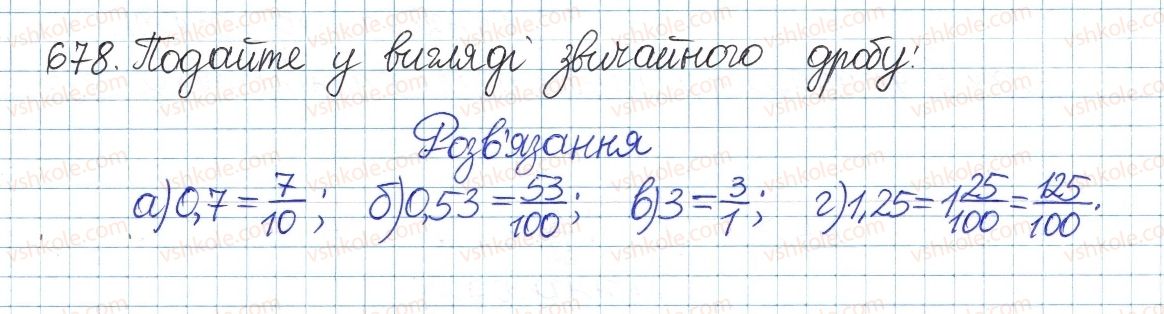 678. Подайте у вигляді звичайного дробу:
Розв'язання
а) 0,7 = 7/10; б) 0,53 = 53/100; в) 3 = 3/1; г) 1,25 = 1 25/100 = 125/100.